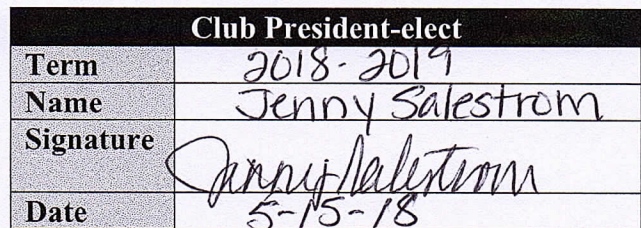 Club President-elect
Term 2018-2019
Name Jenny Salestrom
Signature Jenny Salestrom
Date 5-15-18